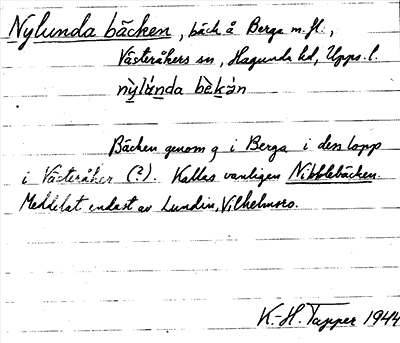 Nylunda bäcken, bäck å Berga m.fl.,
Västeråkers sn, Hagunda hd, Upps. l.
Bäcken genom g i Berga i den lopp
i Västeråker (?). Kallas vanligen Nibblebäcken.
Meddelat endast av Lundin, Vilhelmsro.
K.-H. Tapper 1944